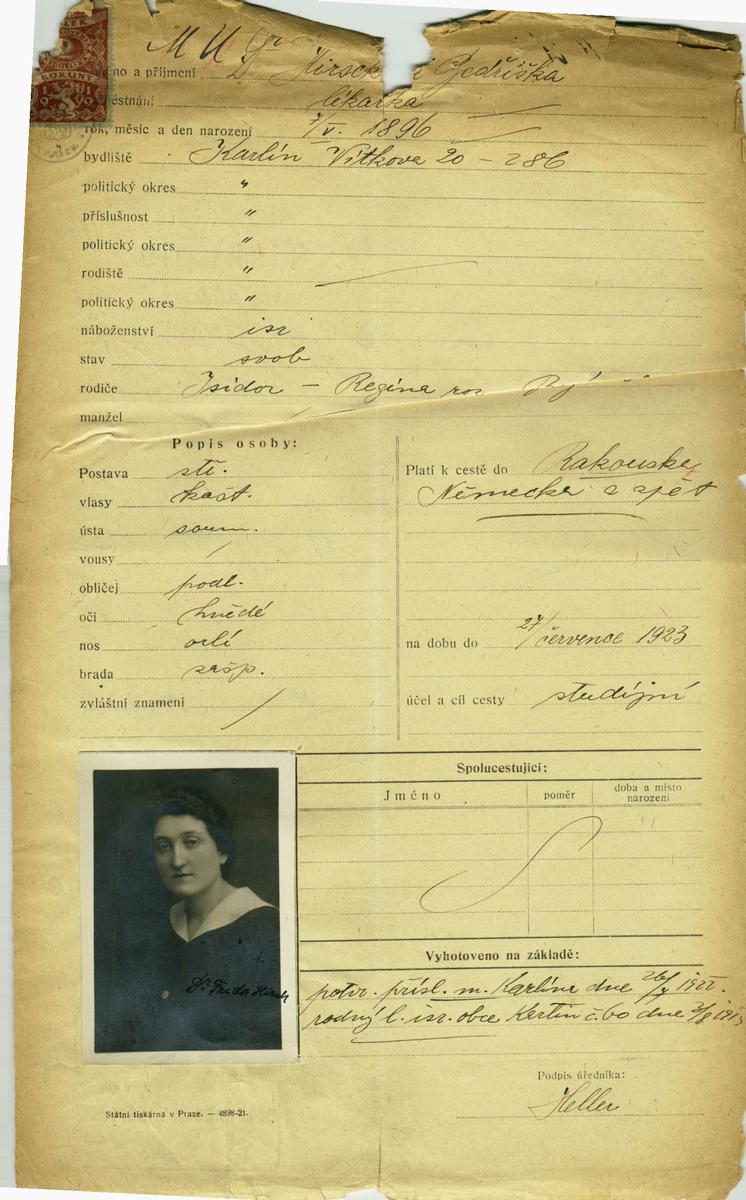 MUDr
jméno a příjmení Hirsch Bedřiška
lékařka
rok, měsíc a den narození 7/V. 1896
bydliště Karlín Vítkova 20 - 286
politický okres "
příslušnost "
politický okres "
rodiště "
politický okres "
náboženství isr
stav svob
rodiče Isidor - Regina roz
manžel
Popis osoby:
Postava stř.
vlasy kašt.
ústa soum.
vousy /
obličej podl.
oči hnědé
nos orlí
brada zašp.
zvláštní znamení /
Platí k cestě do Rakouska,
Německa a zpět
na dobu do 27/ července 1923
účel a cíl cesty studijní
Spolucestující:
Jméno poměr doba a místo narození
Dr Frida Hirsch
Vyhotoveno na základě:
potvr. přísl. m. Karlína dne 1922.
rodný l. isr. obce Karlín č. 60 dne
Podpis úředníka:
Heller
Státní tiskárna v Praze. — 4898-21.